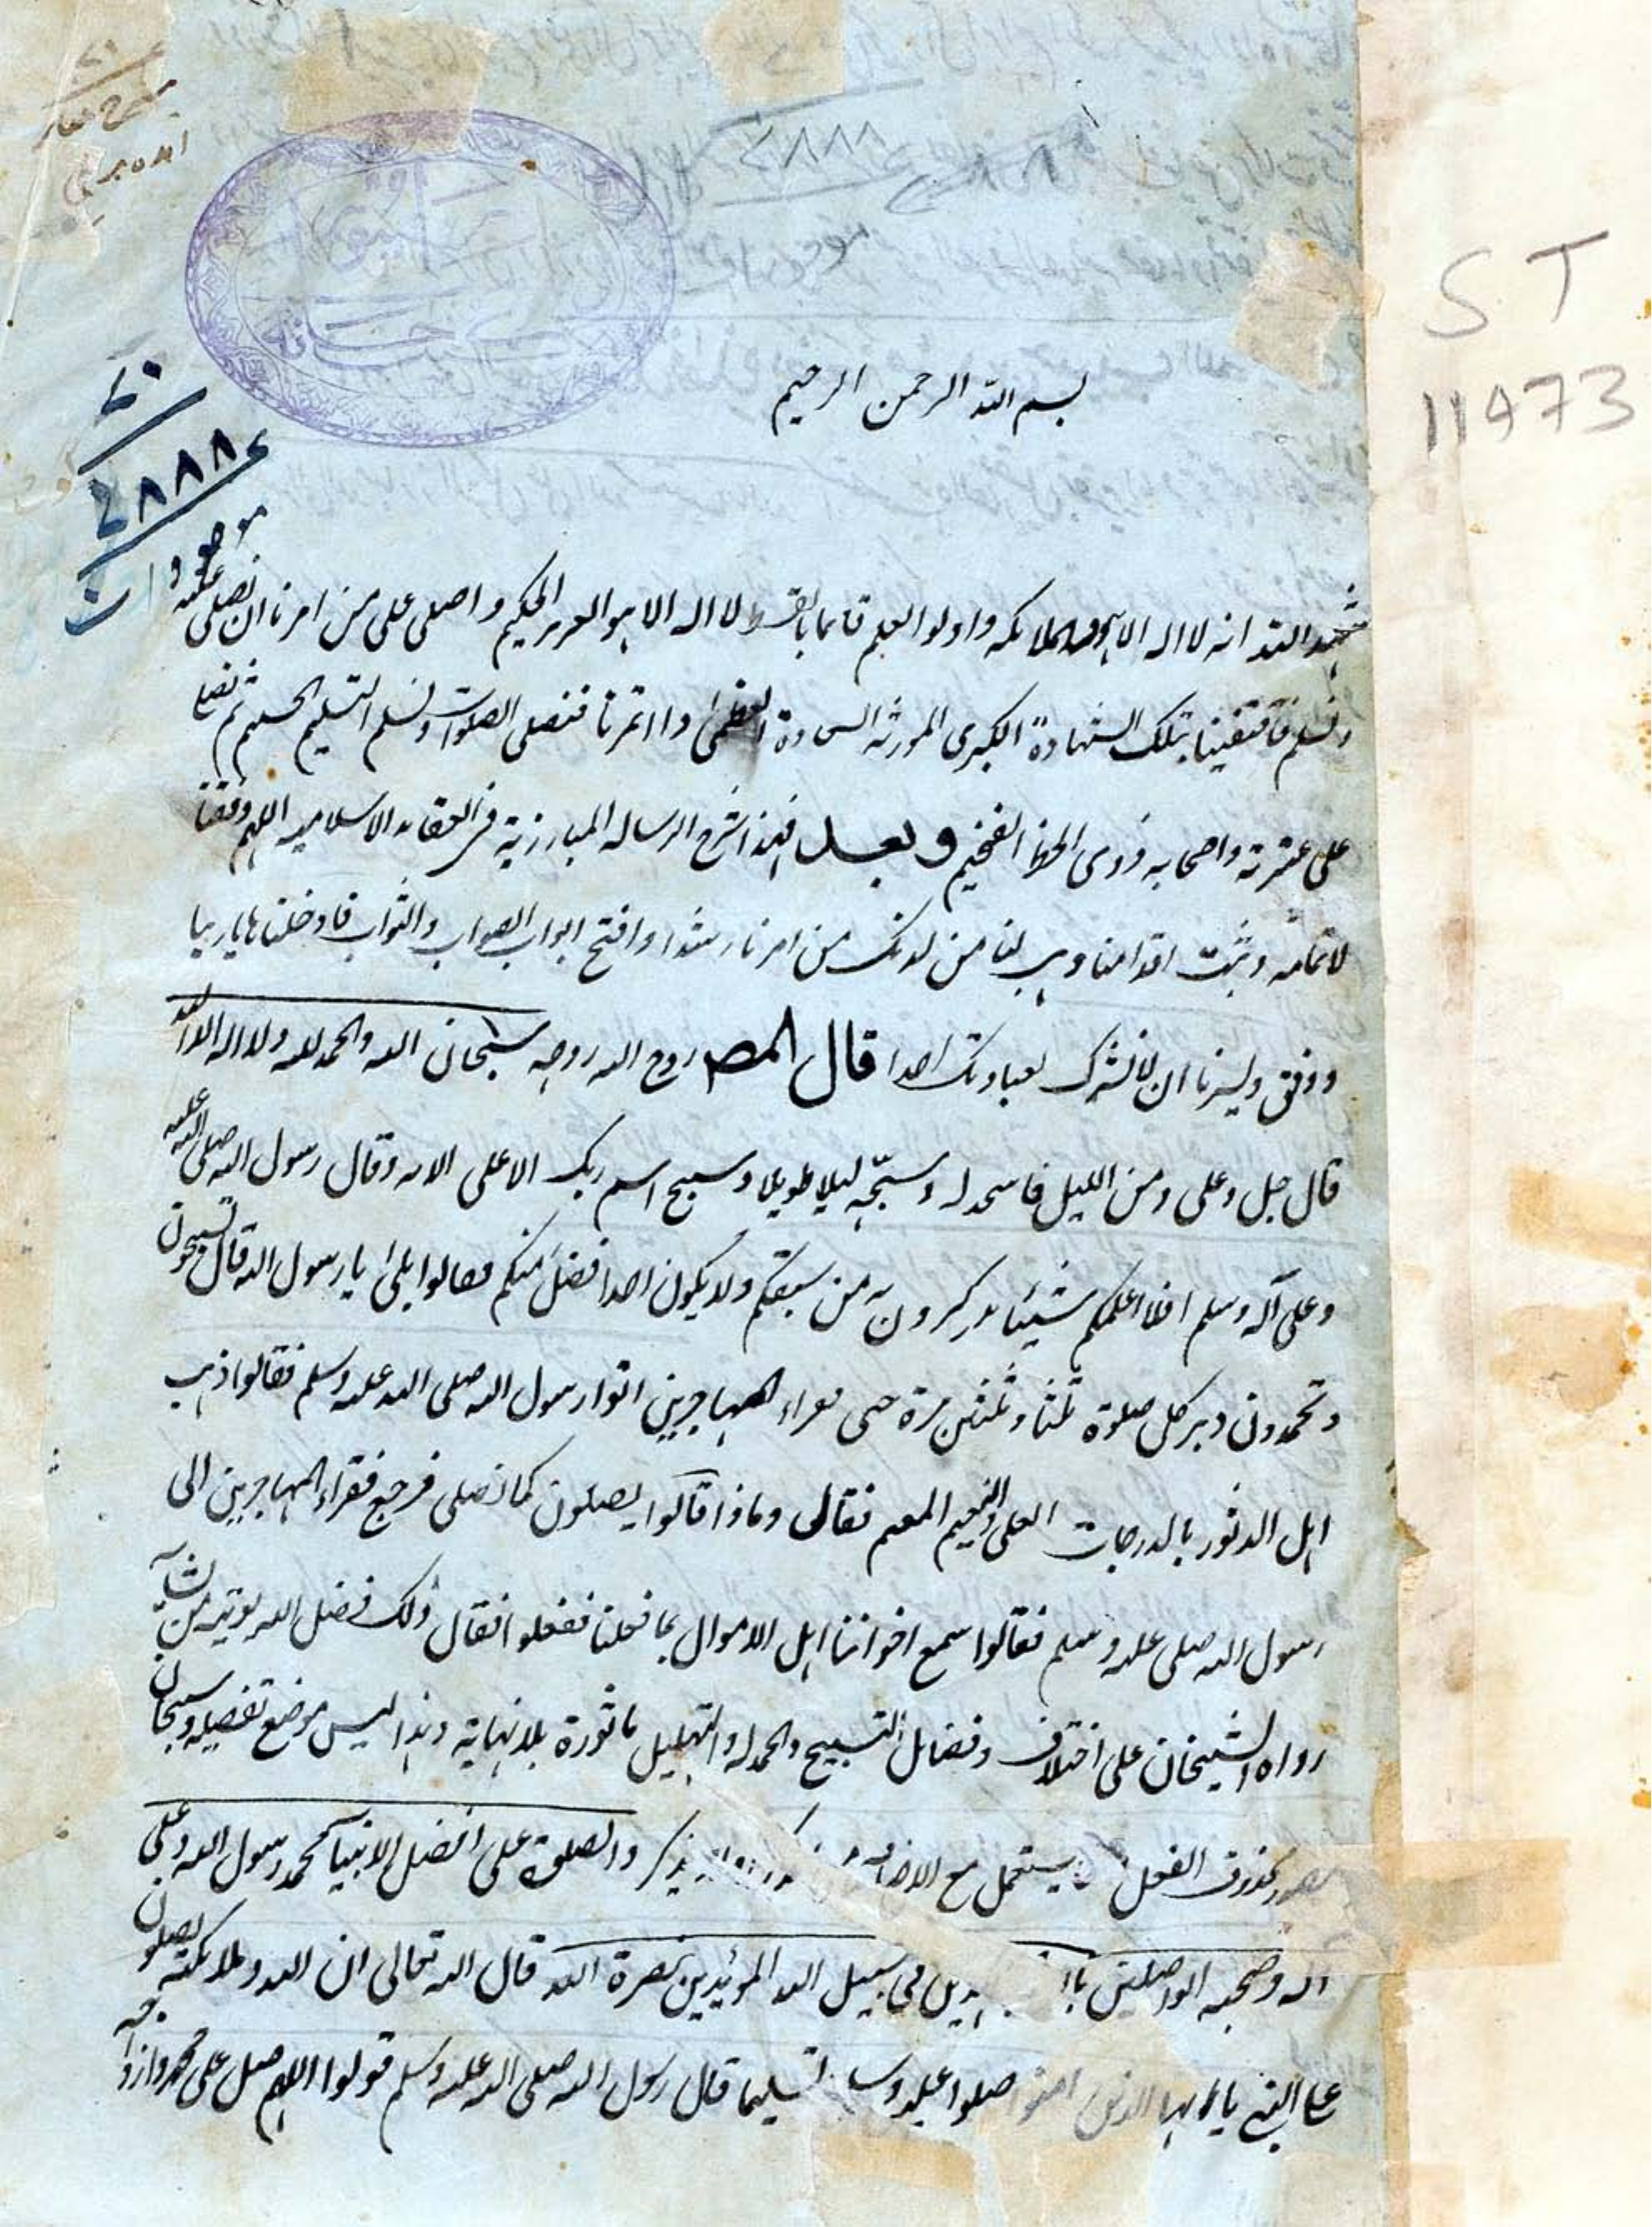 ST
11973
٢٨٨٨
بسم الله الرحمن الرحيم
شهد الله انه لا اله الا هو والملائكه واولوا العلم قائما بالقسط لا اله الا هو العزيز الحكيم واصلى على من امرنا ان نصلى عليه
ونسلم فاقتفينا بتلك الشهادة الكبرى المورثه السعادة العظمى وائتمرنا فنصلى الصلوات ونسلم التسليم ثم نصلى
على عترته واصحابه ذوى الفخيم وبعد فهذا شرح الرساله المبارزية فى العقائد الاسلاميه اللهم وفقنا
لاتمامه وثبت اقدامنا وهب لنا من لدنك من امرنا رشدا وافتح ابواب الصواب والثواب فادخلنا يا ربنا
ووفق ويسرنا ان لا نشرك بعبادتك احدا قال المصـ روح الله روحه سبحان الله والحمد لله ولا اله الا الله
قال جل وعلى ومن الليل فاسجد له وسبحه ليلا طويلا وسبح اسم ربك الاعلى الايه وقال رسول الله صلى الله عليه
وعلى آله وسلم افلا اعلمكم شيئا تدركون به من سبقكم ولا يكون احد افضل منكم فقالوا بلى يا رسول الله قال تسبحون
وتحمدون دبر كل صلوة ثلثا وثلثين مرة فقراء المهاجرين اتوا رسول الله صلى الله عليه وسلم فقالوا ذهب
اهل الدثور بالدرجات العلى والنعيم المقيم فقال وماذا قالوا يصلون كما نصلى فرجع فقراء المهاجرين الى
رسول الله صلى عليه وسلم فقالوا سمع اخواننا اهل الاموال بما فعلنا ففعلوا فقال ذلك فضل الله يوتيه من يشآء
رواه الشيخان على اختلاف وفضائل التسبيح والحمد له والتهليل ماثورة بلا نهاية وهذا ليس موضع تفصيله وسبحان
مصدر محذوف الفعل يستعمل مع الاضافه يذكر والصلوة على افضل الانبيآء محمد رسول الله وعلى
اله وصحبه الواصلين فى سبيل الله المؤيدين بنصرة الله قال الله تعالى ان الله وملائكته يصلون
على النبى يا ايها الذين امنوا صلوا عليه تسليما قال رسول الله صلى الله عليه وسلم قولوا اللهم صل على محمد وازواجه